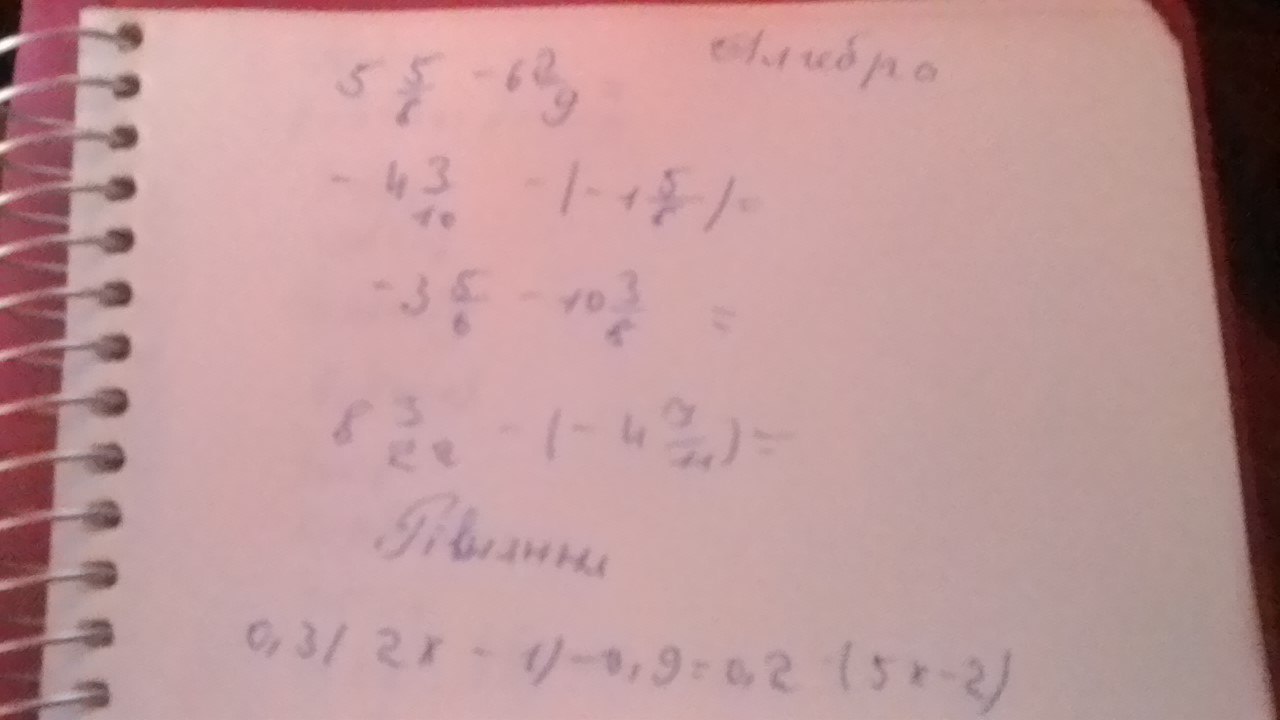 Алгебра
5 5/6 - 6 2/9
- 4 3/10 - (- 1 5/6) =
- 3 5/6 - 10 3/8 =
8 3/22 - (- 4 7/11) =
Рівняння
0,3( 2x - 1) - 0,9 = 0,2 (5x - 2)